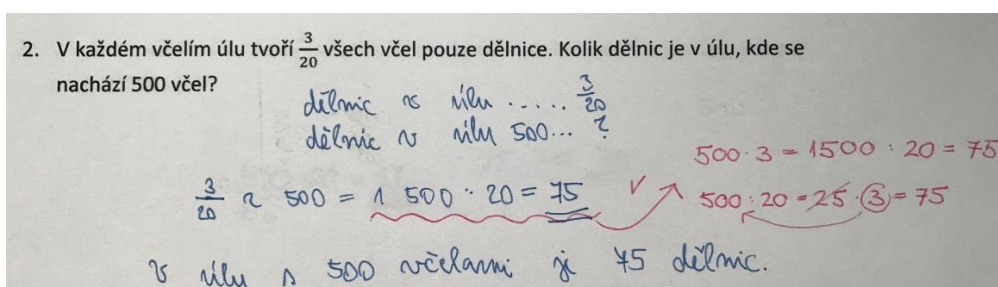 2. V každém včelím úlu tvoří 3/20 všech včel pouze dělnice. Kolik dělnic je v úlu, kde se
nachází 500 včel?
dělnic v úlu ..... 3/20
dělnic v úlu 500... ?
500 · 3 = 1500 : 20 = 75
3/20 z 500 = 1 500 : 20 = 75 ✓
500 : 20 = 25 · 3 = 75
V úlu s 500 včelami je 75 dělnic.